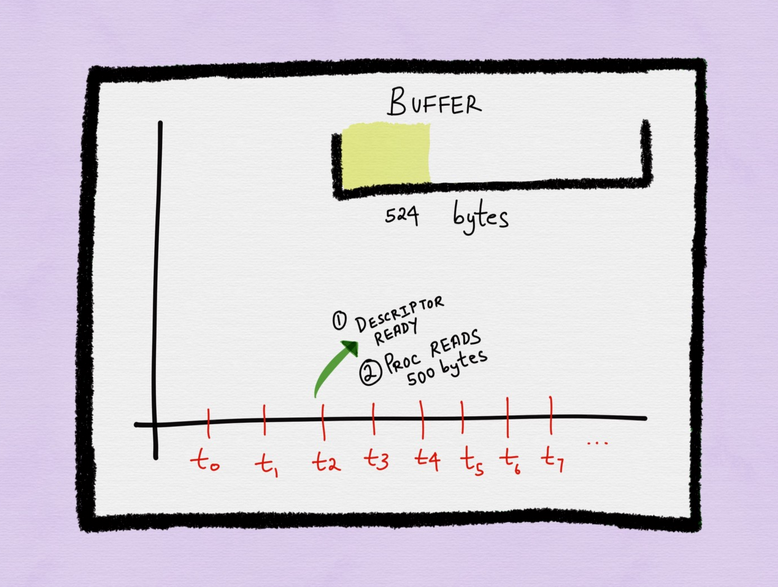 BUFFER
524 bytes
① DESCRIPTOR
READY
② PROC READS
500 bytes
t0 t1 t2 t3 t4 t5 t6 t7 ...